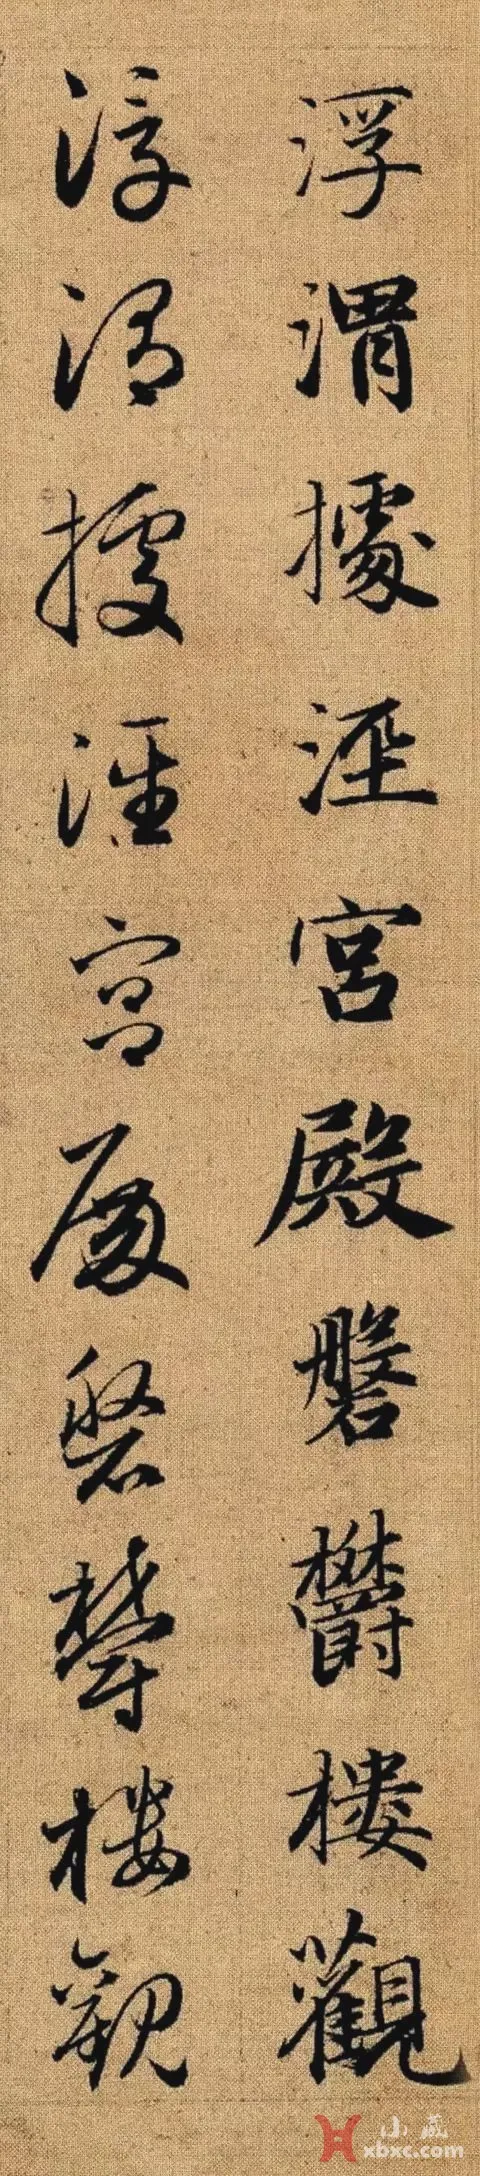 浮渭據涇宮殿磐欝樓觀
浮渭據涇宮殿磐欝樓觀
小藏
xbxc.com